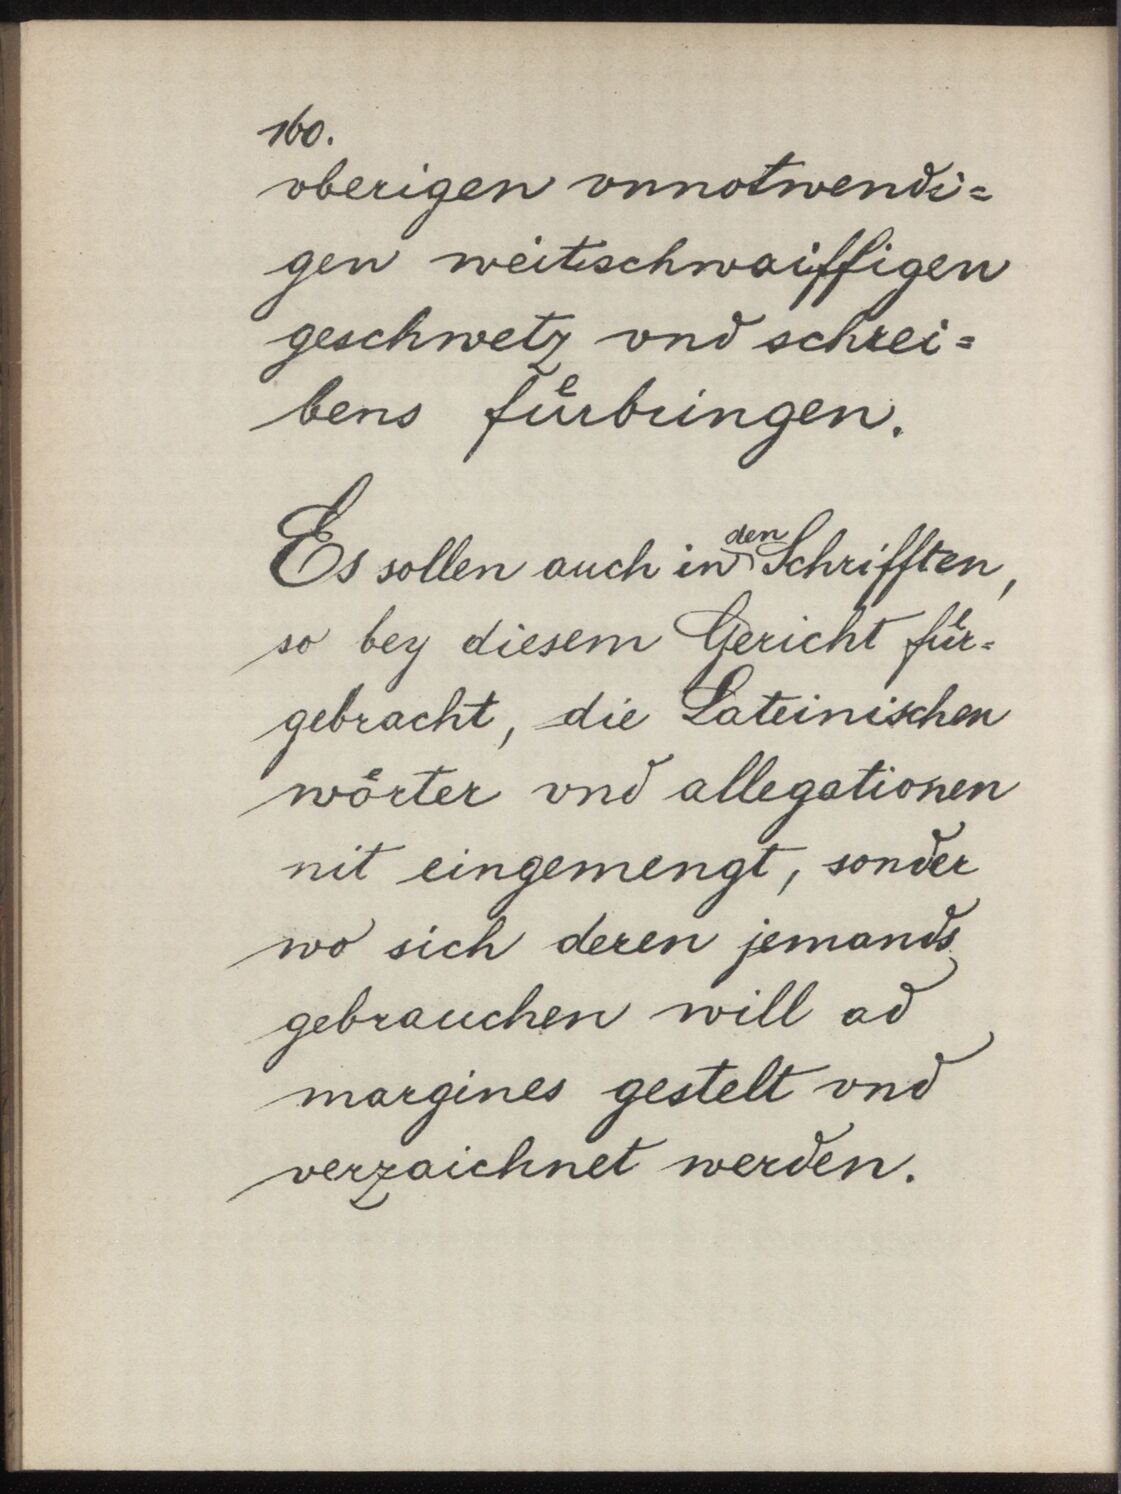 160.
vberigen vnnotwendi=
gen weitischwaiffigen
geschwetz vnd schrei=
bens fuͤrbringen.
Es sollen auch in den Schrifften,
so bey diesem Gericht fuͤr=
gebracht, die Lateinischen
woͤrter vnd allegationen
nit eingemengt, sonder
wo sich deren jemands
gebrauchen will ad
margines gestelt vnd
verzaichnet werden.